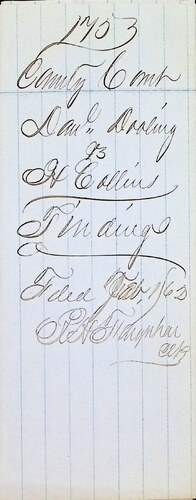 1753
County Court
Danl. Dooling
vs
H Collins
Findings
Filed Feb 1/63
clk